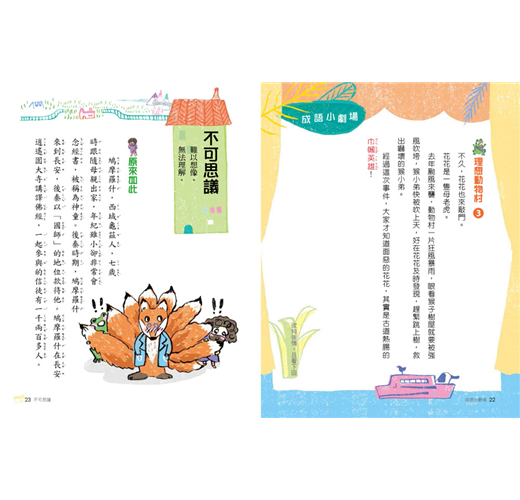 成語小劇場
理想動物村 3
不久,花花也來敲門。
花花是一隻母老虎。
去年颱風來襲,動物村一片狂風暴雨,眼看猴子樹屋就要被強
風吹垮,猴小弟快被吹上天,好在花花及時發現,趕緊跳上樹,救
出嚇壞的猴小弟。
經過這次事件,大家才知道面惡的花花,其實是古道熱腸的
巾幗英雄!
22
不可思議
難以想像、
無法理解。
原來如此
鳩摩羅什,西域龜茲人,七歲
時跟隨母親出家,年紀雖小卻非常會
念經書,被稱為神童。後秦時期,鳩摩羅什
來到長安,後秦以「國師」的地位款待他。鳩摩羅什在長安
逍遙園大寺講譯佛經,一起參與的信徒有一千兩百多人。
23 不可思議